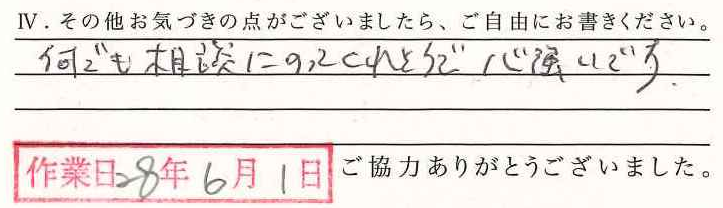 Ⅳ．その他お気づきの点がございましたら、ご自由にお書きください。
何でも相談にのってくれそうで 心強いです.
作業日28年6月1日
ご協力ありがとうございました。